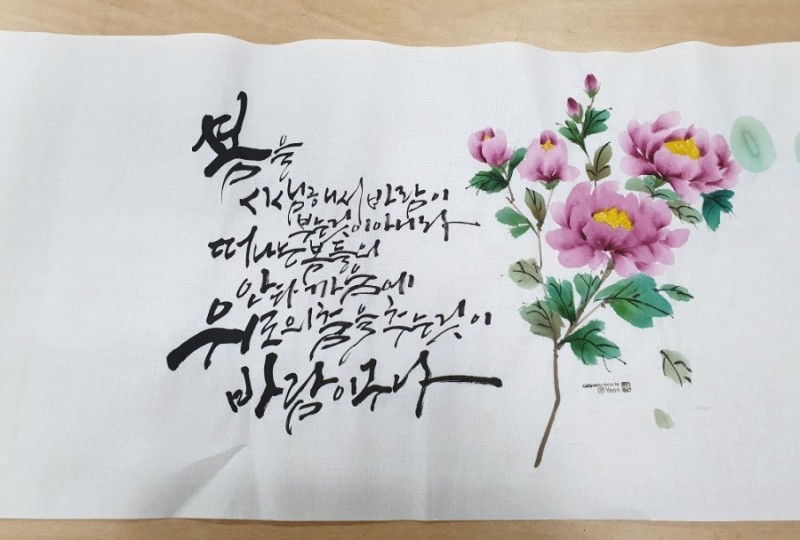 봄을
시샘해서 바람이
부는 것이 아니라
떠나는 봄들의
안타까움에
위로의 춤을 추는 것이
바람이구나